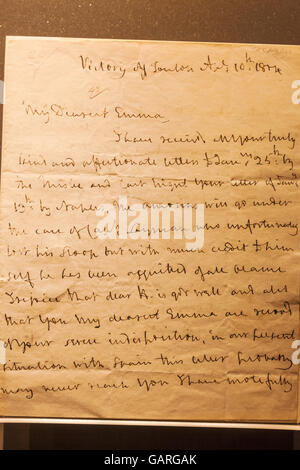 Victory off Toulon Ap: 10th: 1804
My Dearest Emma
I have receiv'd all your truly
kind and affectionate letters to Jan: 25th: by
the Thisbe and last night your letter of Jan:
13th: by Naples The amazon will go under
the care of Capt: Layman who unfortunately
lost his sloop but with much credit to him
self he has been acquitted of all blame
I rejoice that dear H. is got well and also
that You My dearest Emma are recov'd
of your severe indisposition, in our present
situation with Spain this letter probably
may never reach You I have wrote fully
alamy
GARGAK
www.alamy.com